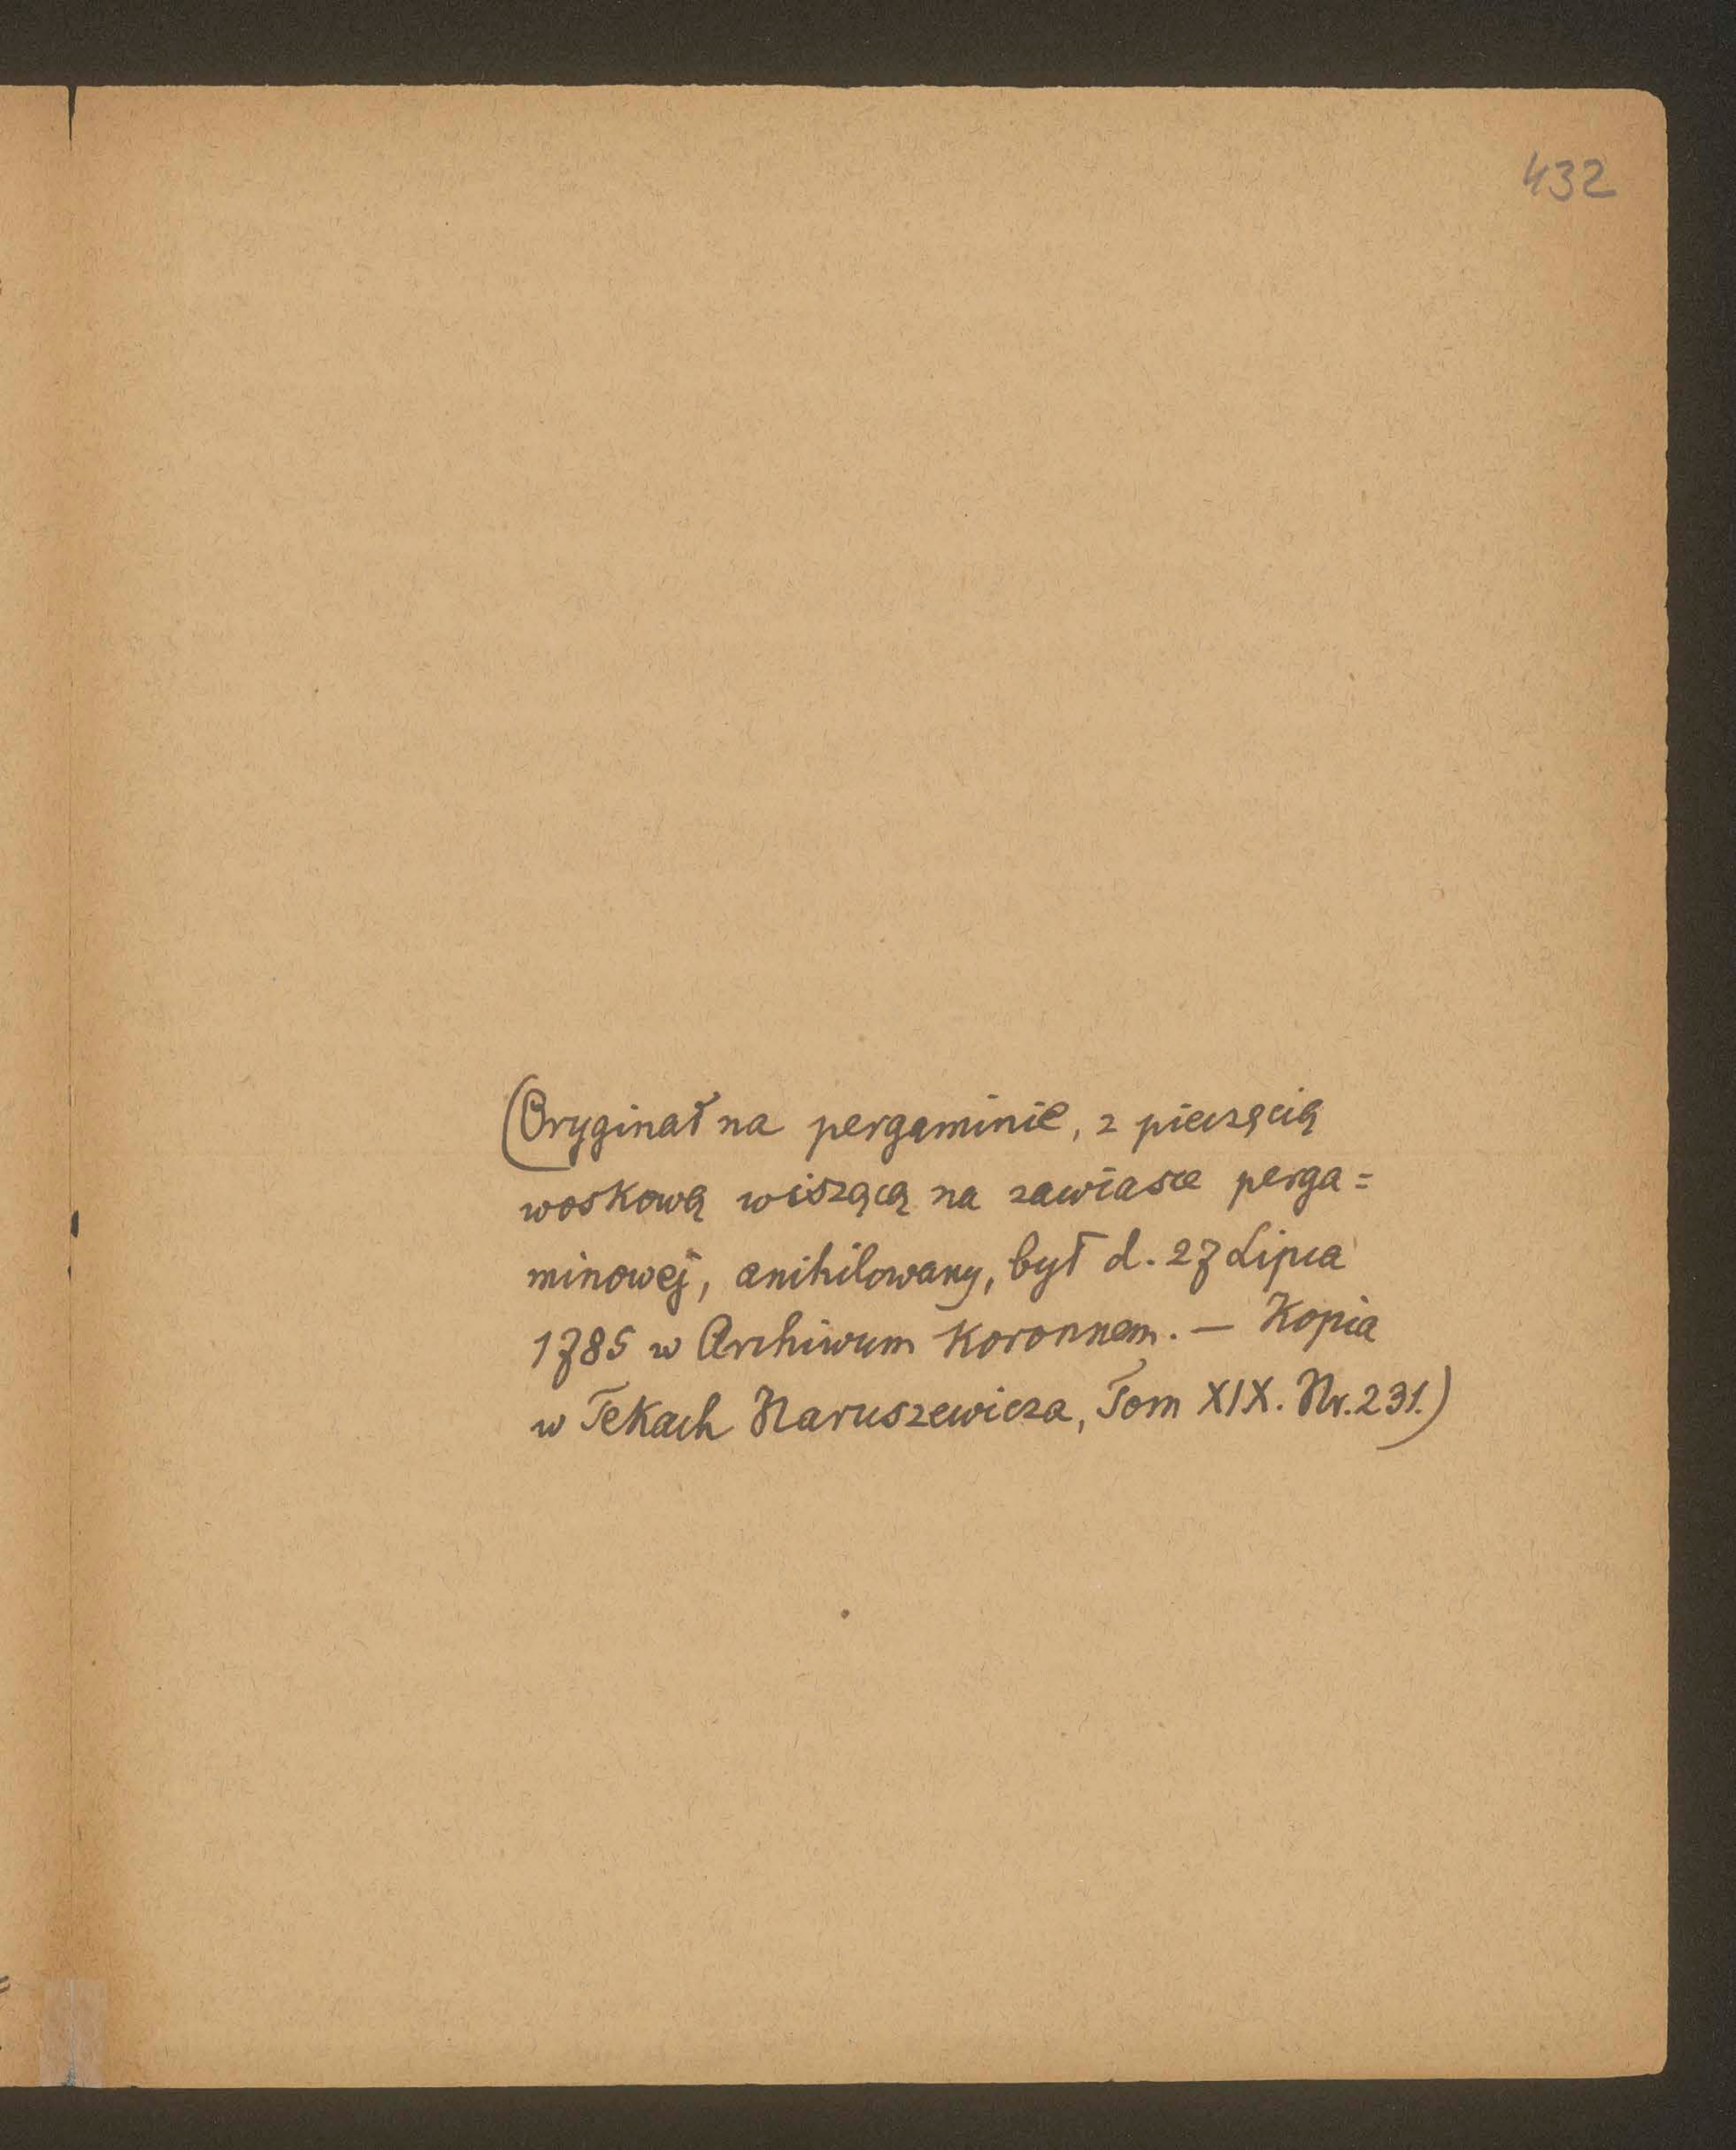 432
(Oryginał na pergaminie, z pieczęcią
woskową wiszącą na zawiasce perga=
minowej, anihilowany, był d. 27 Lipca
1785 w Archiwum Koronnem. — Kopia
w Tekach Naruszewicza, Tom XIX. Nr. 231.)